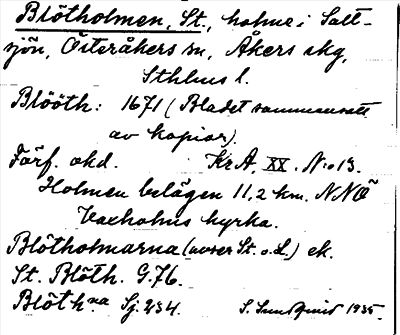 Blötholmen, St., holme i Salt-
sjön, Österåkers sn, Åkers skg,
Sthlms l.
Blööth: 1671 (Bladet sammansatt
av kopior).
Förf. okd. KrA, XX. N:o 13.
Holmen belägen 11,2 km. NNÖ
Vaxholms kyrka.
Blötholmarna (avser St. o. L.) ek.
St. Blöth. G.76.
Blöth:na Sj. 234. S. Sundquist 1935.